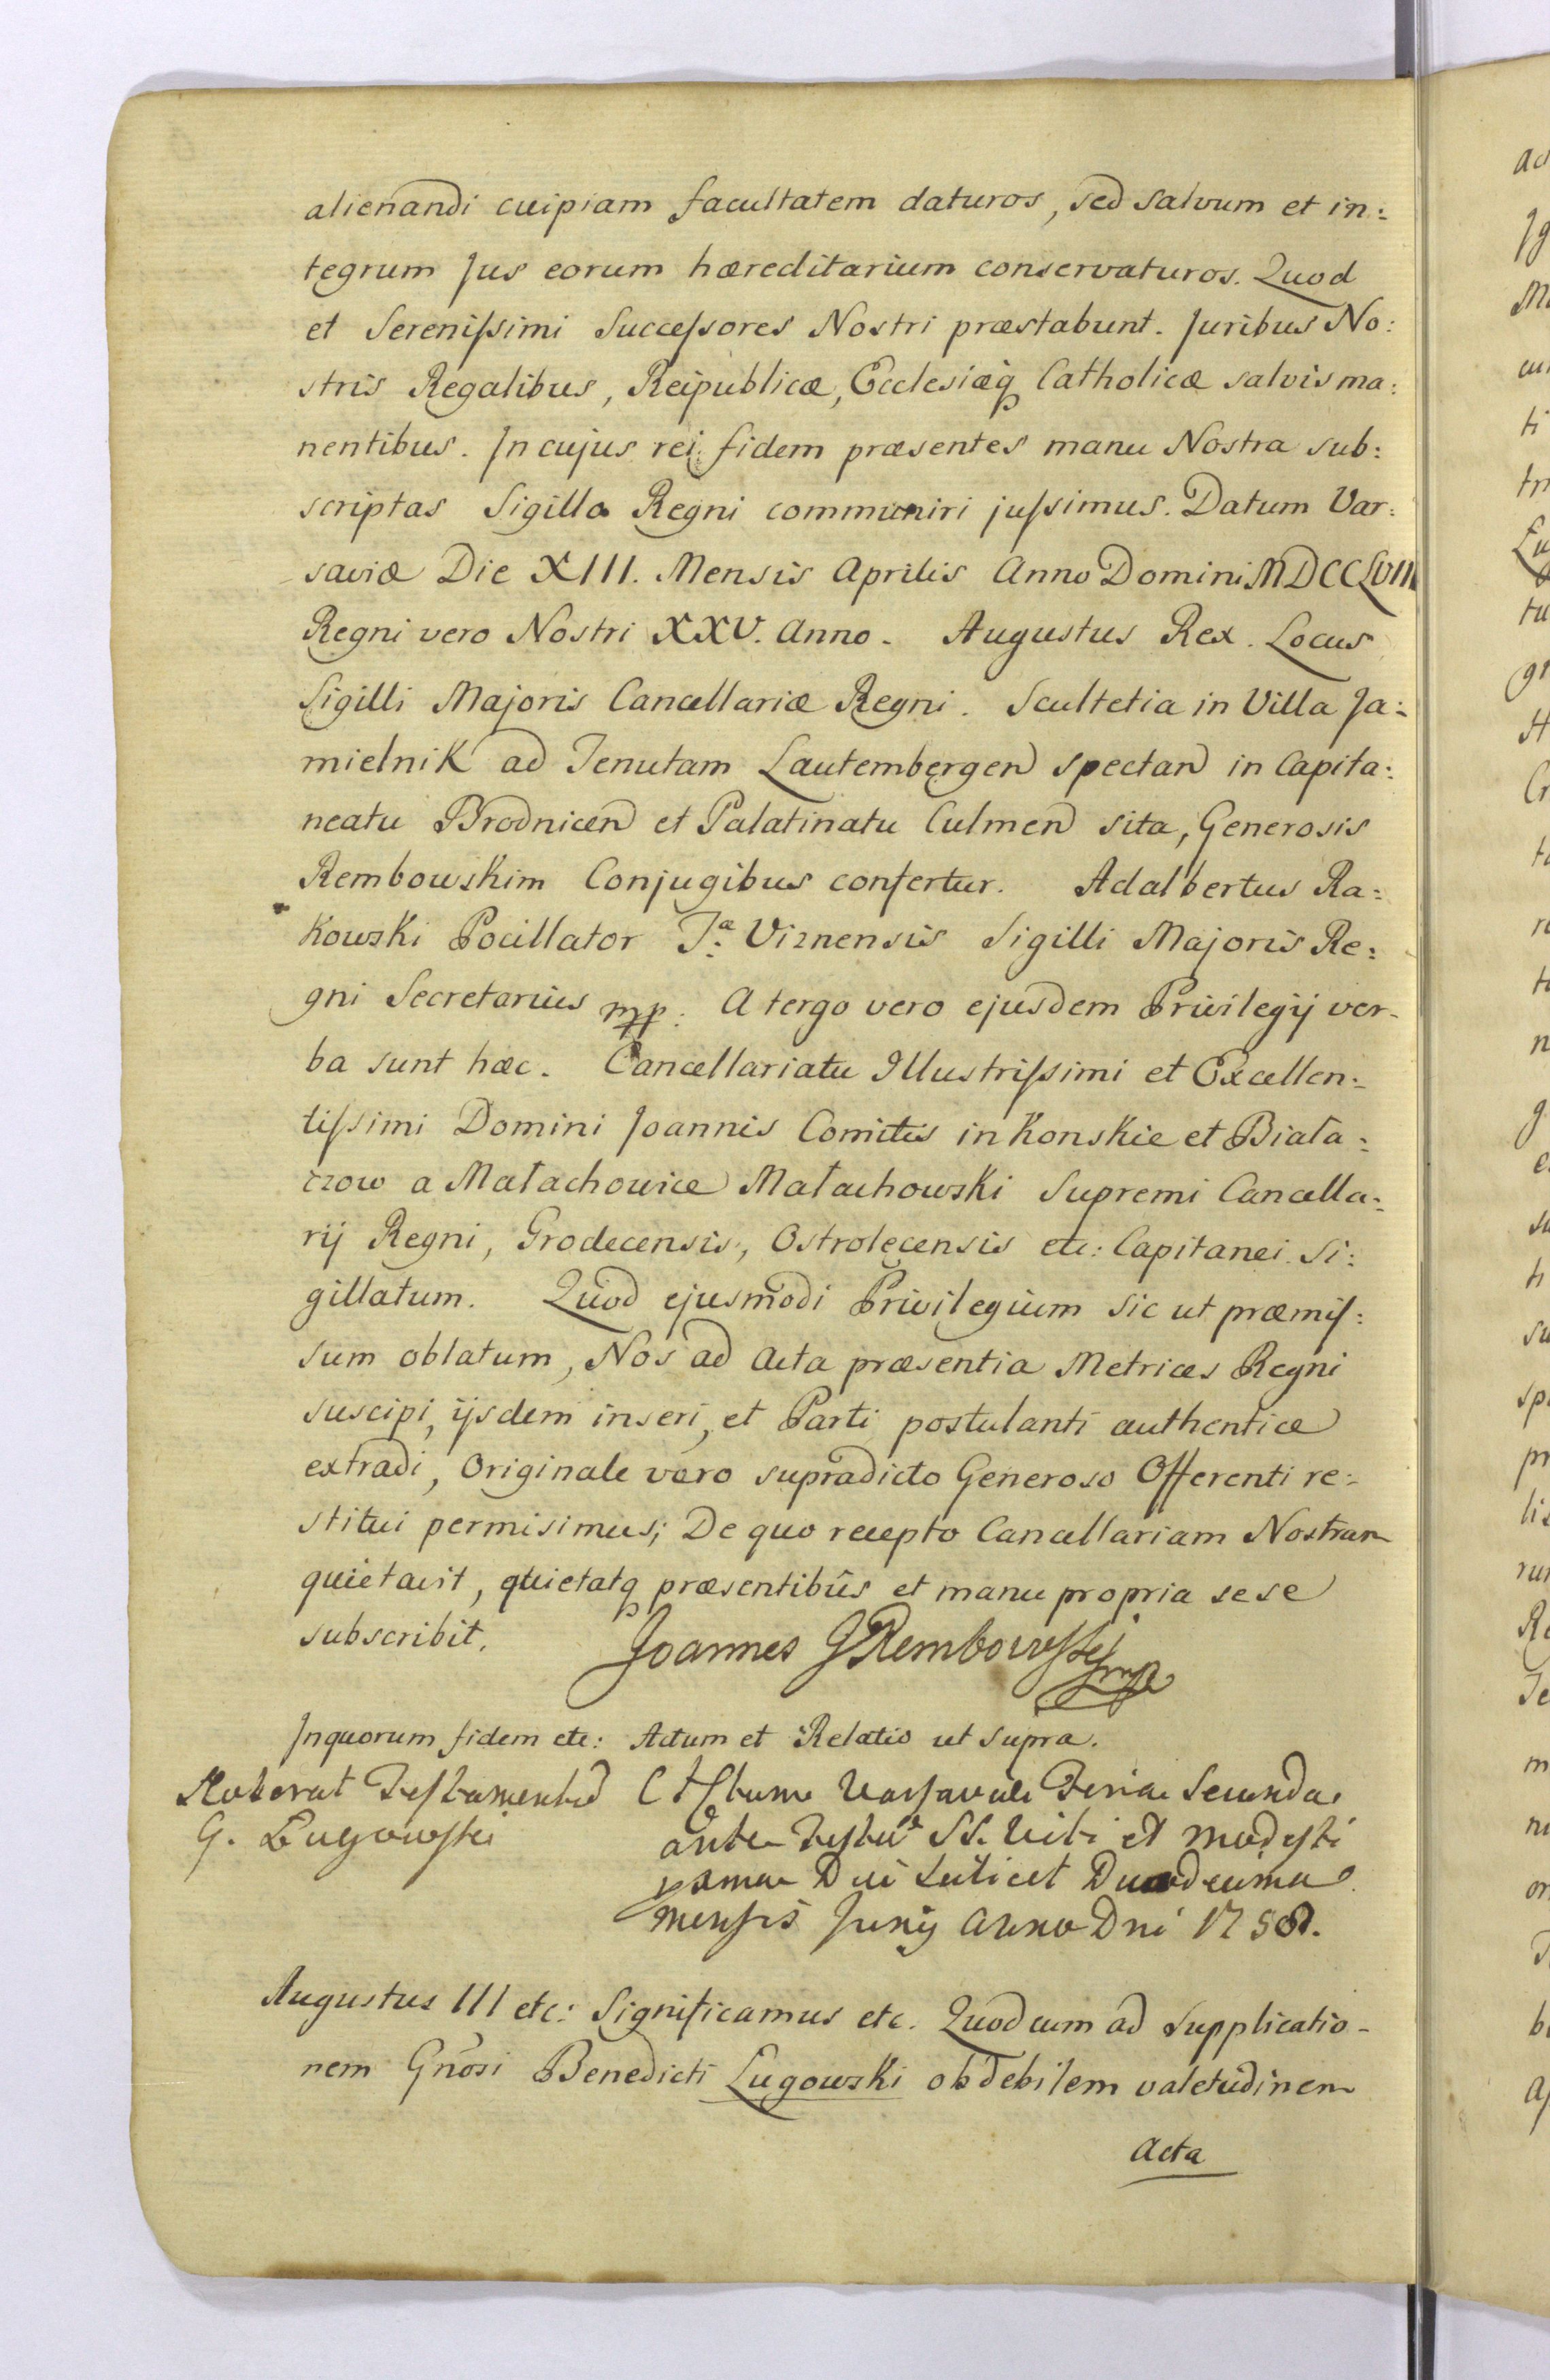 alienandi cuipiam facultatem daturos, sed salvum et in:
tegrum Jus eorum hæreditarium conservaturos. Quod
et Serenißimi Succeßores Nostri præstabunt. Juribus No:
stris Regalibus, Reipublicæ, Ecclesiæq Catholicæ salvis ma:
nentibus. In cujus rei fidem præsentes manu Nostra sub:
scriptas Sigillo Regni communiri jußimus. Datum Var:
saviæ Die XIII. Mensis Aprilis Anno Domini MDCCLVIII
Regni vero Nostri XXV. Anno. Augustus Rex. Locus
Sigilli Majoris Cancellariæ Regni. Scultetia in Villa Ja:
mielnik ad Tenutam Lautembergen spectan in Capita:
neatu Brodnicen et Palatinatu Culmen sita, Generosis
Rembowskim Conjugibus confertur. Adalbertus Ra:
kowski Pocillator Tæ Viznensis Sigilli Majoris Re:
gni Secretarius mp: A tergo vero ejusdem Privilegij ver-
ba sunt hæc. Cancellariatu Illustrißimi et Excellen:
tißimi Domini Joannis Comitis in Konskie et Biała:
czow a Małachowice Małachowski Supremi Cancella:
rij Regni, Grodecensis, Ostrolęcensis etc: Capitanei. Si:
gillatum. Quod ejusmodi Privilegium sic ut præmis:
sum oblatum, Nos ad Acta præsentia Metrices Regni
suscipi, ijsdem inseri, et Parti postulanti authentice
extradi, Originale vero supradicto Generoso Offerenti re:
stitui permisimus; De quo recepto Cancellariam Nostram
quietavit, quietatq præsentibus et manu propria sese
subscribit. Joannes G Rembowski mp
In quorum fidem etc: Actum et Relatio ut supra.
Roborat Testamentum Actum Varsaviæ Feria Secunda
G. Lugowski
ante Festum SS. Viti et Modesti
Die scilicet Duodecima
mensis Junij Anno Dni 1758.
Augustus III etc: Significamus etc. Quod cum ad supplicatio-
nem Gnosi Benedicti Lugowski ob debilem valetudinem
Acta